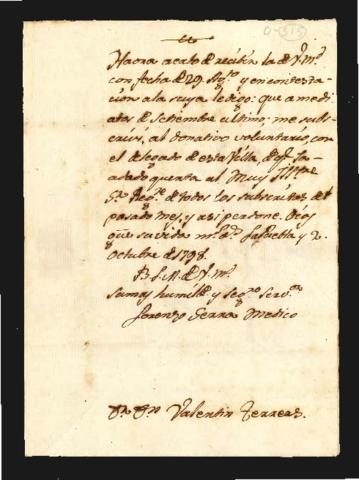 Haora acabo de recibir la de Vm.
con fecha de 29 Ag.o y en contesta-
cion a la suya le digo: que a medi
ados de Setiembre ultimo, me subs-
crivi, al donativo voluntario, con
el delegado de esta Villa, el qe. ha
dado quenta al Muy Illtre
Sr Reg.e de todos los subscritos del
pasado mes, y asi perdone. Dios
gue su vida ms. as. La Puebla y 2
Octubre de 1798.
B.L.M. de Vm.
su mas humilde y seg.o serv.or
Lorenzo Serra Medico
Sr. Dn. Valentin Terrers.